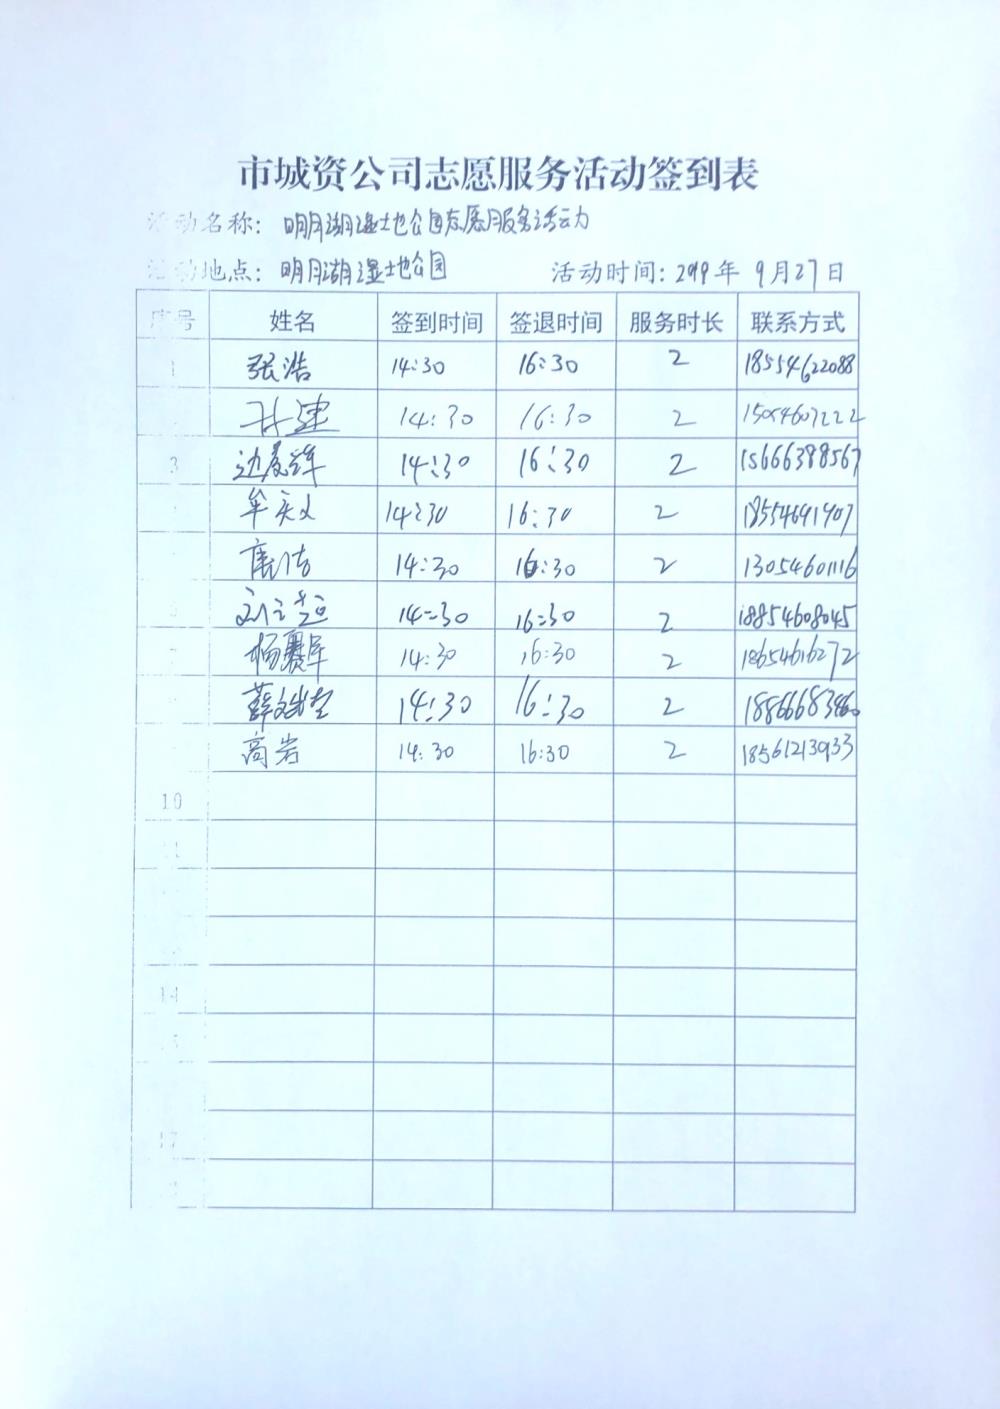 市城资公司志愿服务活动签到表
活动名称: 明月湖湿地公园志愿服务活动
活动地点: 明月湖湿地公园 活动时间: 2019年 9月27日
序号 姓名 签到时间 签退时间 服务时长 联系方式
1 张浩 14:30 16:30 2 18554622088
14:30 16:30 2
3 14:30 16:30 2 15666388567
14:30 16:30 2 18554691907
唐洁 14:30 16:30 2 13054601116
14:30 16:30 2 18854608045
7 杨赛军 14:30 16:30 2 18654616272
14:30 16:30 2
高岩 14:30 16:30 2 18561213933
10
11
14
15
17